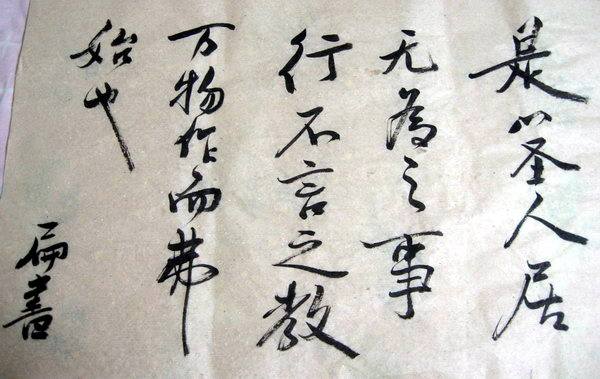 是以圣人居
无为之事
行不言之教
万物作而弗
始也
扁書